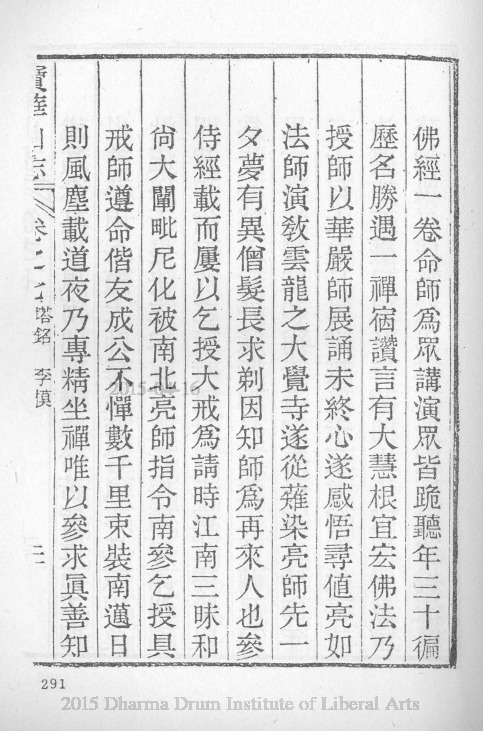 佛經一卷命師爲眾講演眾皆跪聽年三十徧
歷名勝遇一禪宿讚言有大慧根宜宏佛法乃
授師以華嚴師展誦未終心遂感悟尋值亮如
法師演敎雲龍之大覺寺遂從薙染亮師先一
夕夢有異僧髮長求剃因知師爲再來人也參
侍經載而屢以乞授大戒爲請時江南三昧和
尙大闡毗尼化被南北亮師指令南參乞授具
戒師遵命偕友成公不憚數千里束裝南邁日
則風塵載道夜乃專精坐禪唯以參求眞善知
寶華山志 卷之七 塔銘 李模 二
291
2015 Dharma Drum Institute of Liberal Arts